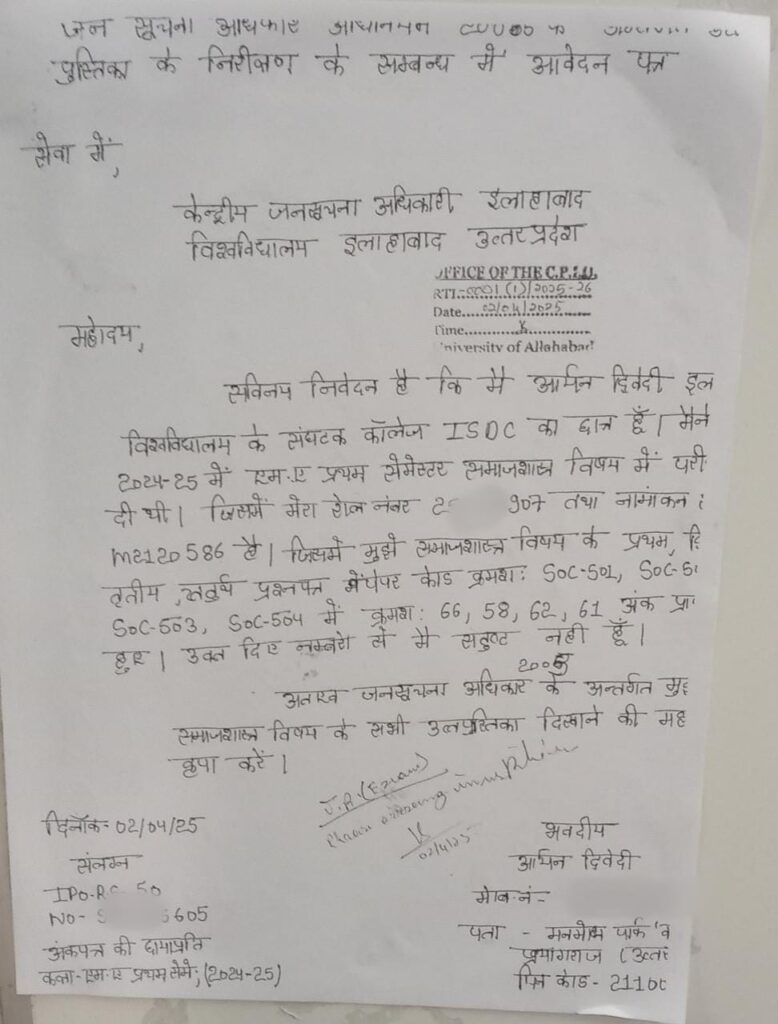 जन सूचना अधिकार अधिनियम
पुस्तिका के निरीक्षण के सम्बन्ध में आवेदन पत्र
सेवा में,
केन्द्रीय जनसूचना अधिकारी इलाहाबाद
विश्वविद्यालय इलाहाबाद उत्तरप्रदेश
OFFICE OF THE C.P.I.O.
RTI.:0001(1)/2025-26
Date....02/04/2025
Time....
University of Allahabad
महोदय,
सविनय निवेदन है कि मै आर्यन द्विवेदी इल
विश्वविद्यालय के संघटक कॉलेज ISDC का छात्र हूँ। मैने
2024-25 में एम.ए प्रथम सेमेस्टर समाजशास्त्र विषय में परी
दी थी। जिसमें मेरा रोल नंबर 2 907 तथा नामांकन
M2120586 है। जिसमे मुझे समाजशास्त्र विषय के प्रथम, द्वि
तृतीय, चतुर्थ प्रश्नपत्र में पेपर कोड क्रमश: SOC-501, SOC-5
SOC-503, SOC-504 में क्रमश: 66, 58, 62, 61 अंक प्रा
हुए। उक्त दिए नम्बरो से मै सतुष्ट नही हूँ।
2005
अतएव जनसूचना अधिकार के अन्तर्गत मु
समाजशास्त्र विषय के सभी उत्तपुस्तिका दिखाने की मह
कृपा करें।
J.R (Exam)
02/4/25
दिनाँक- 02/04/25
संलग्न
IPO-R 50
NO- S 605
अंकपत्र की छायाप्रति
कक्षा-एम.ए प्रथम सेमे, (2024-25)
भवदीय
आर्यन द्विवेदी
मोब.नं-
पता - मनमोहन पार्क
प्रयागराज (उत्तर
पिन कोड - 2110